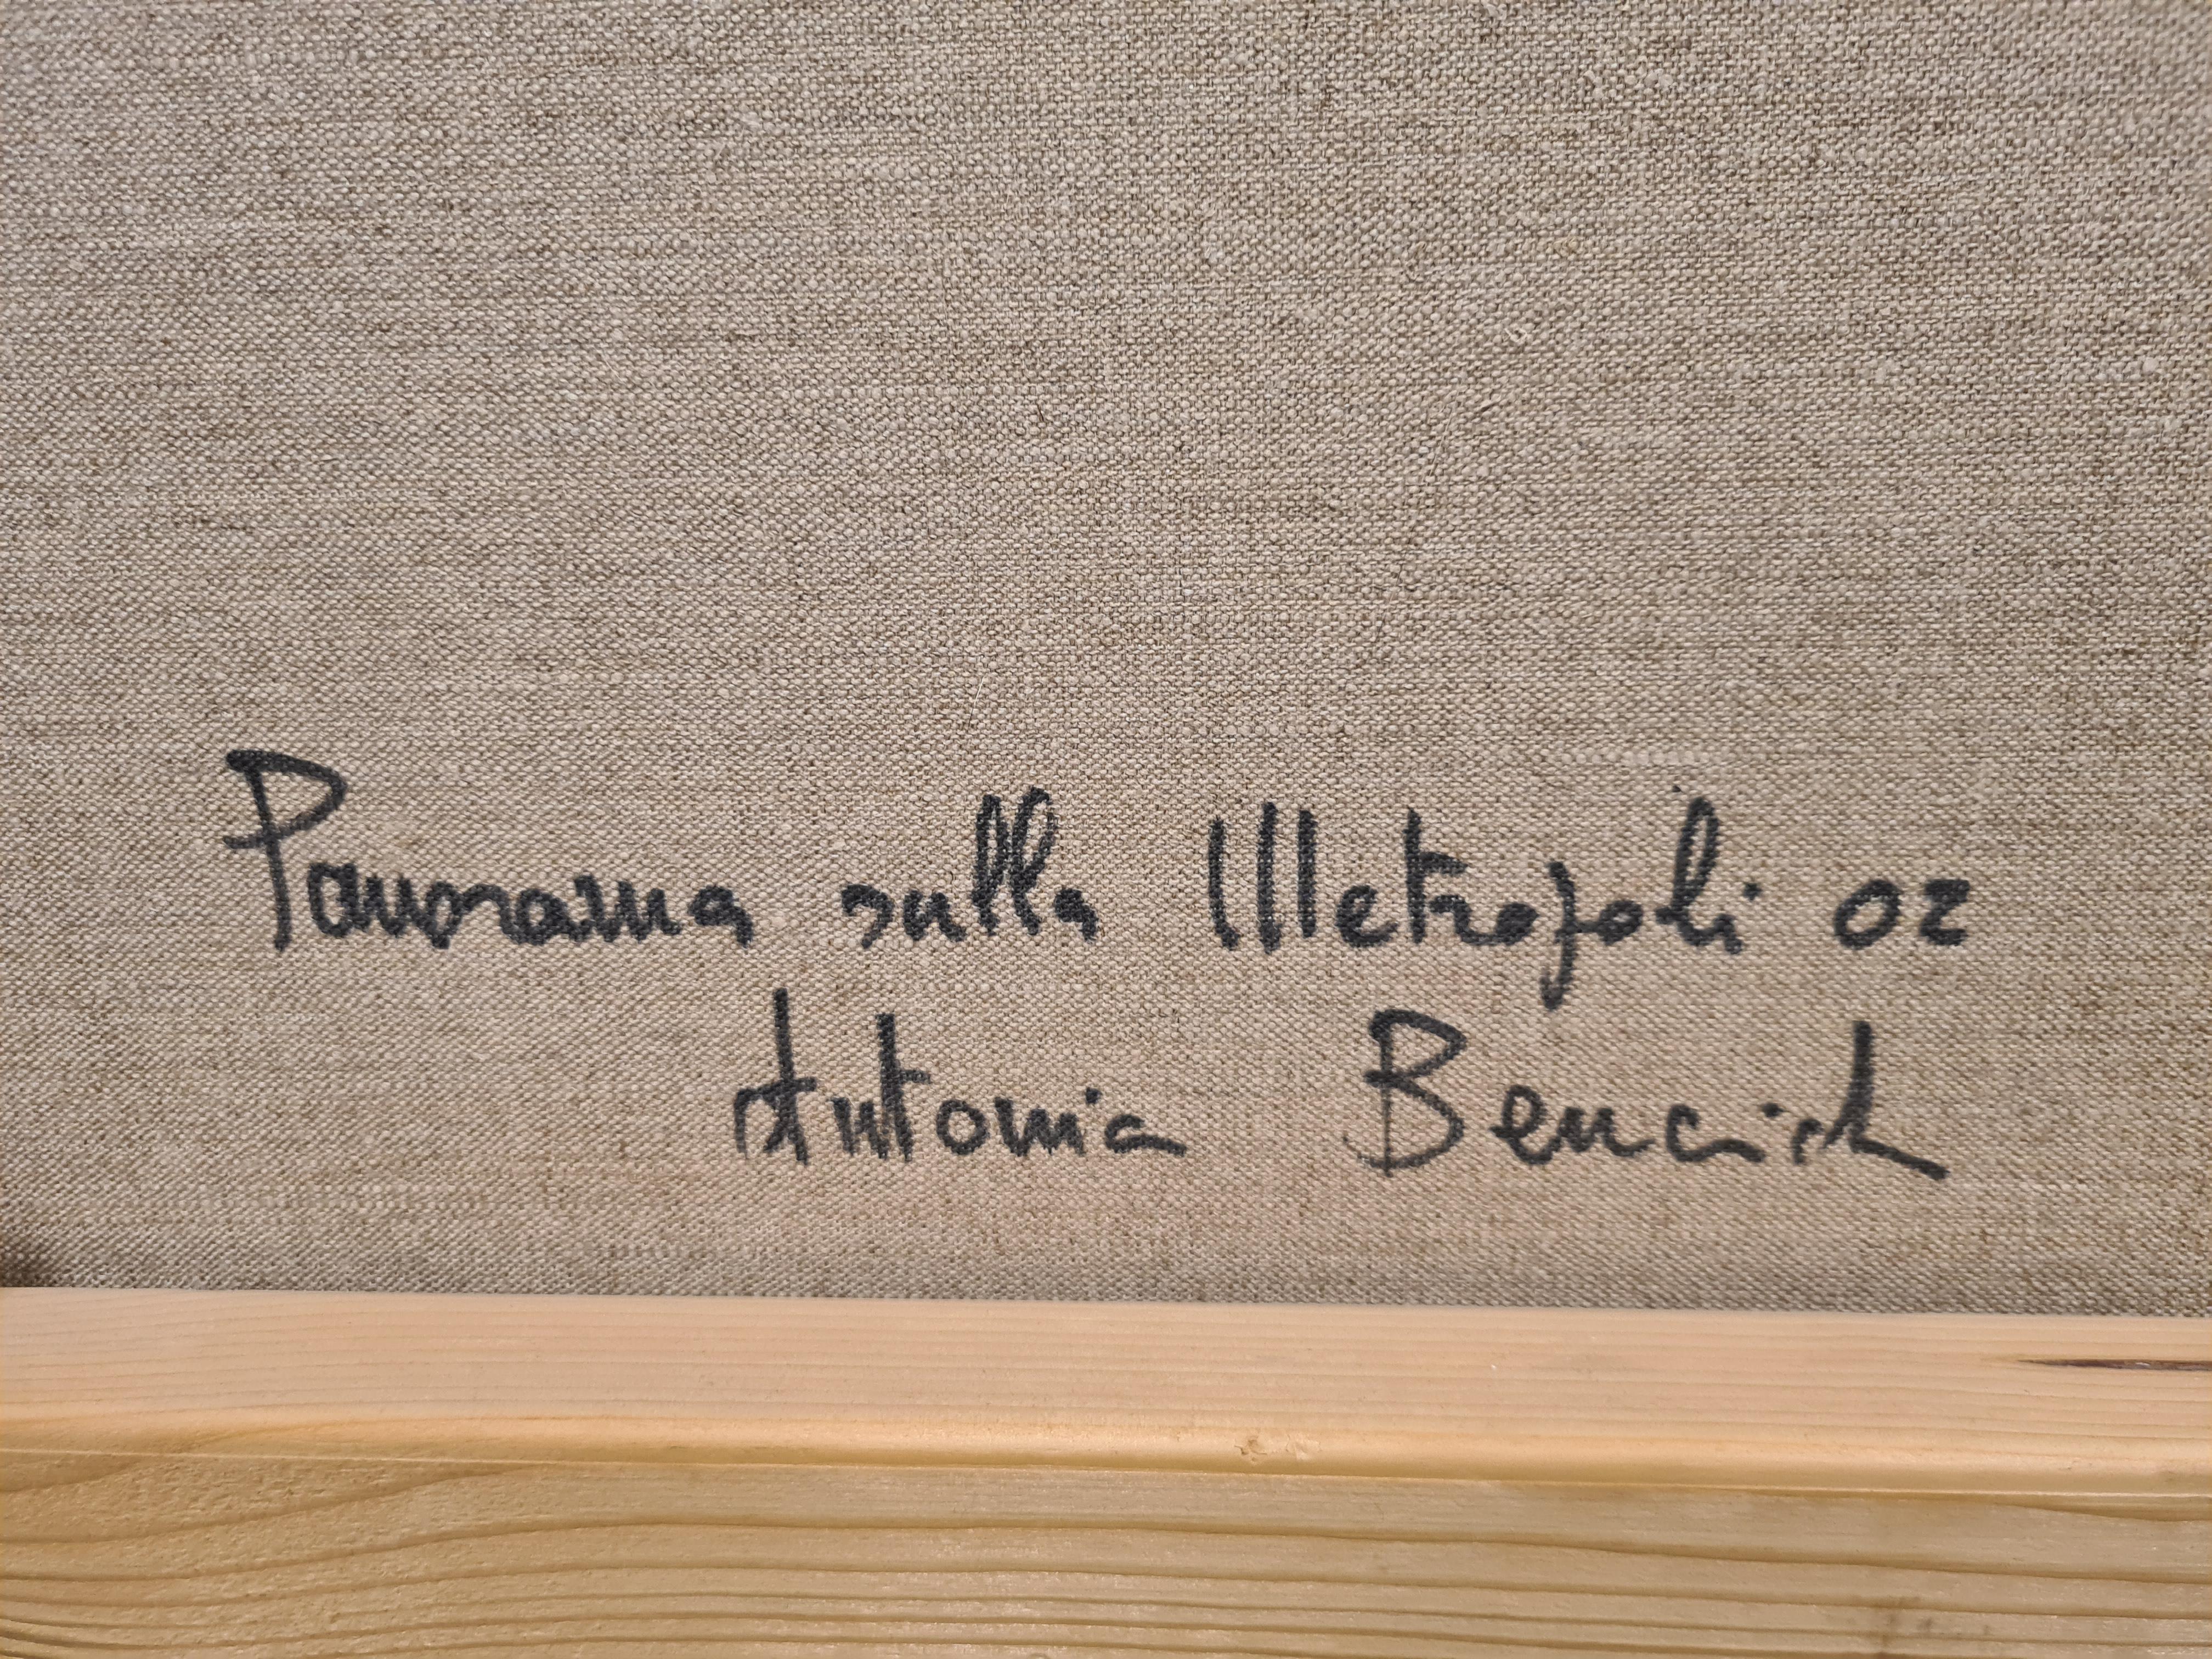 Panorama sulla Metropoli 02
Antonia Bencich